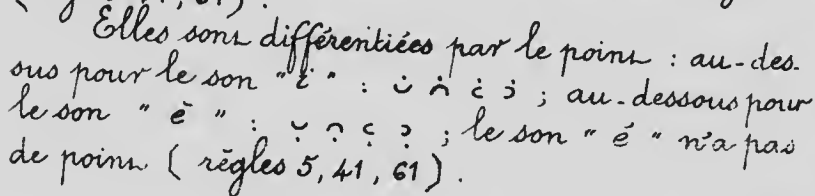 Elles sont différentiées par le point : au-des-
sus pour le son "i" : ᴗ̇ ᴖ̇ ċ ɔ̇ ; au-dessous pour
le son "è" : ᴗ̣ ᴖ̣ c̣ ɔ̣ ; le son "é" n'a pas
de point ( règles 5, 41, 61 ).